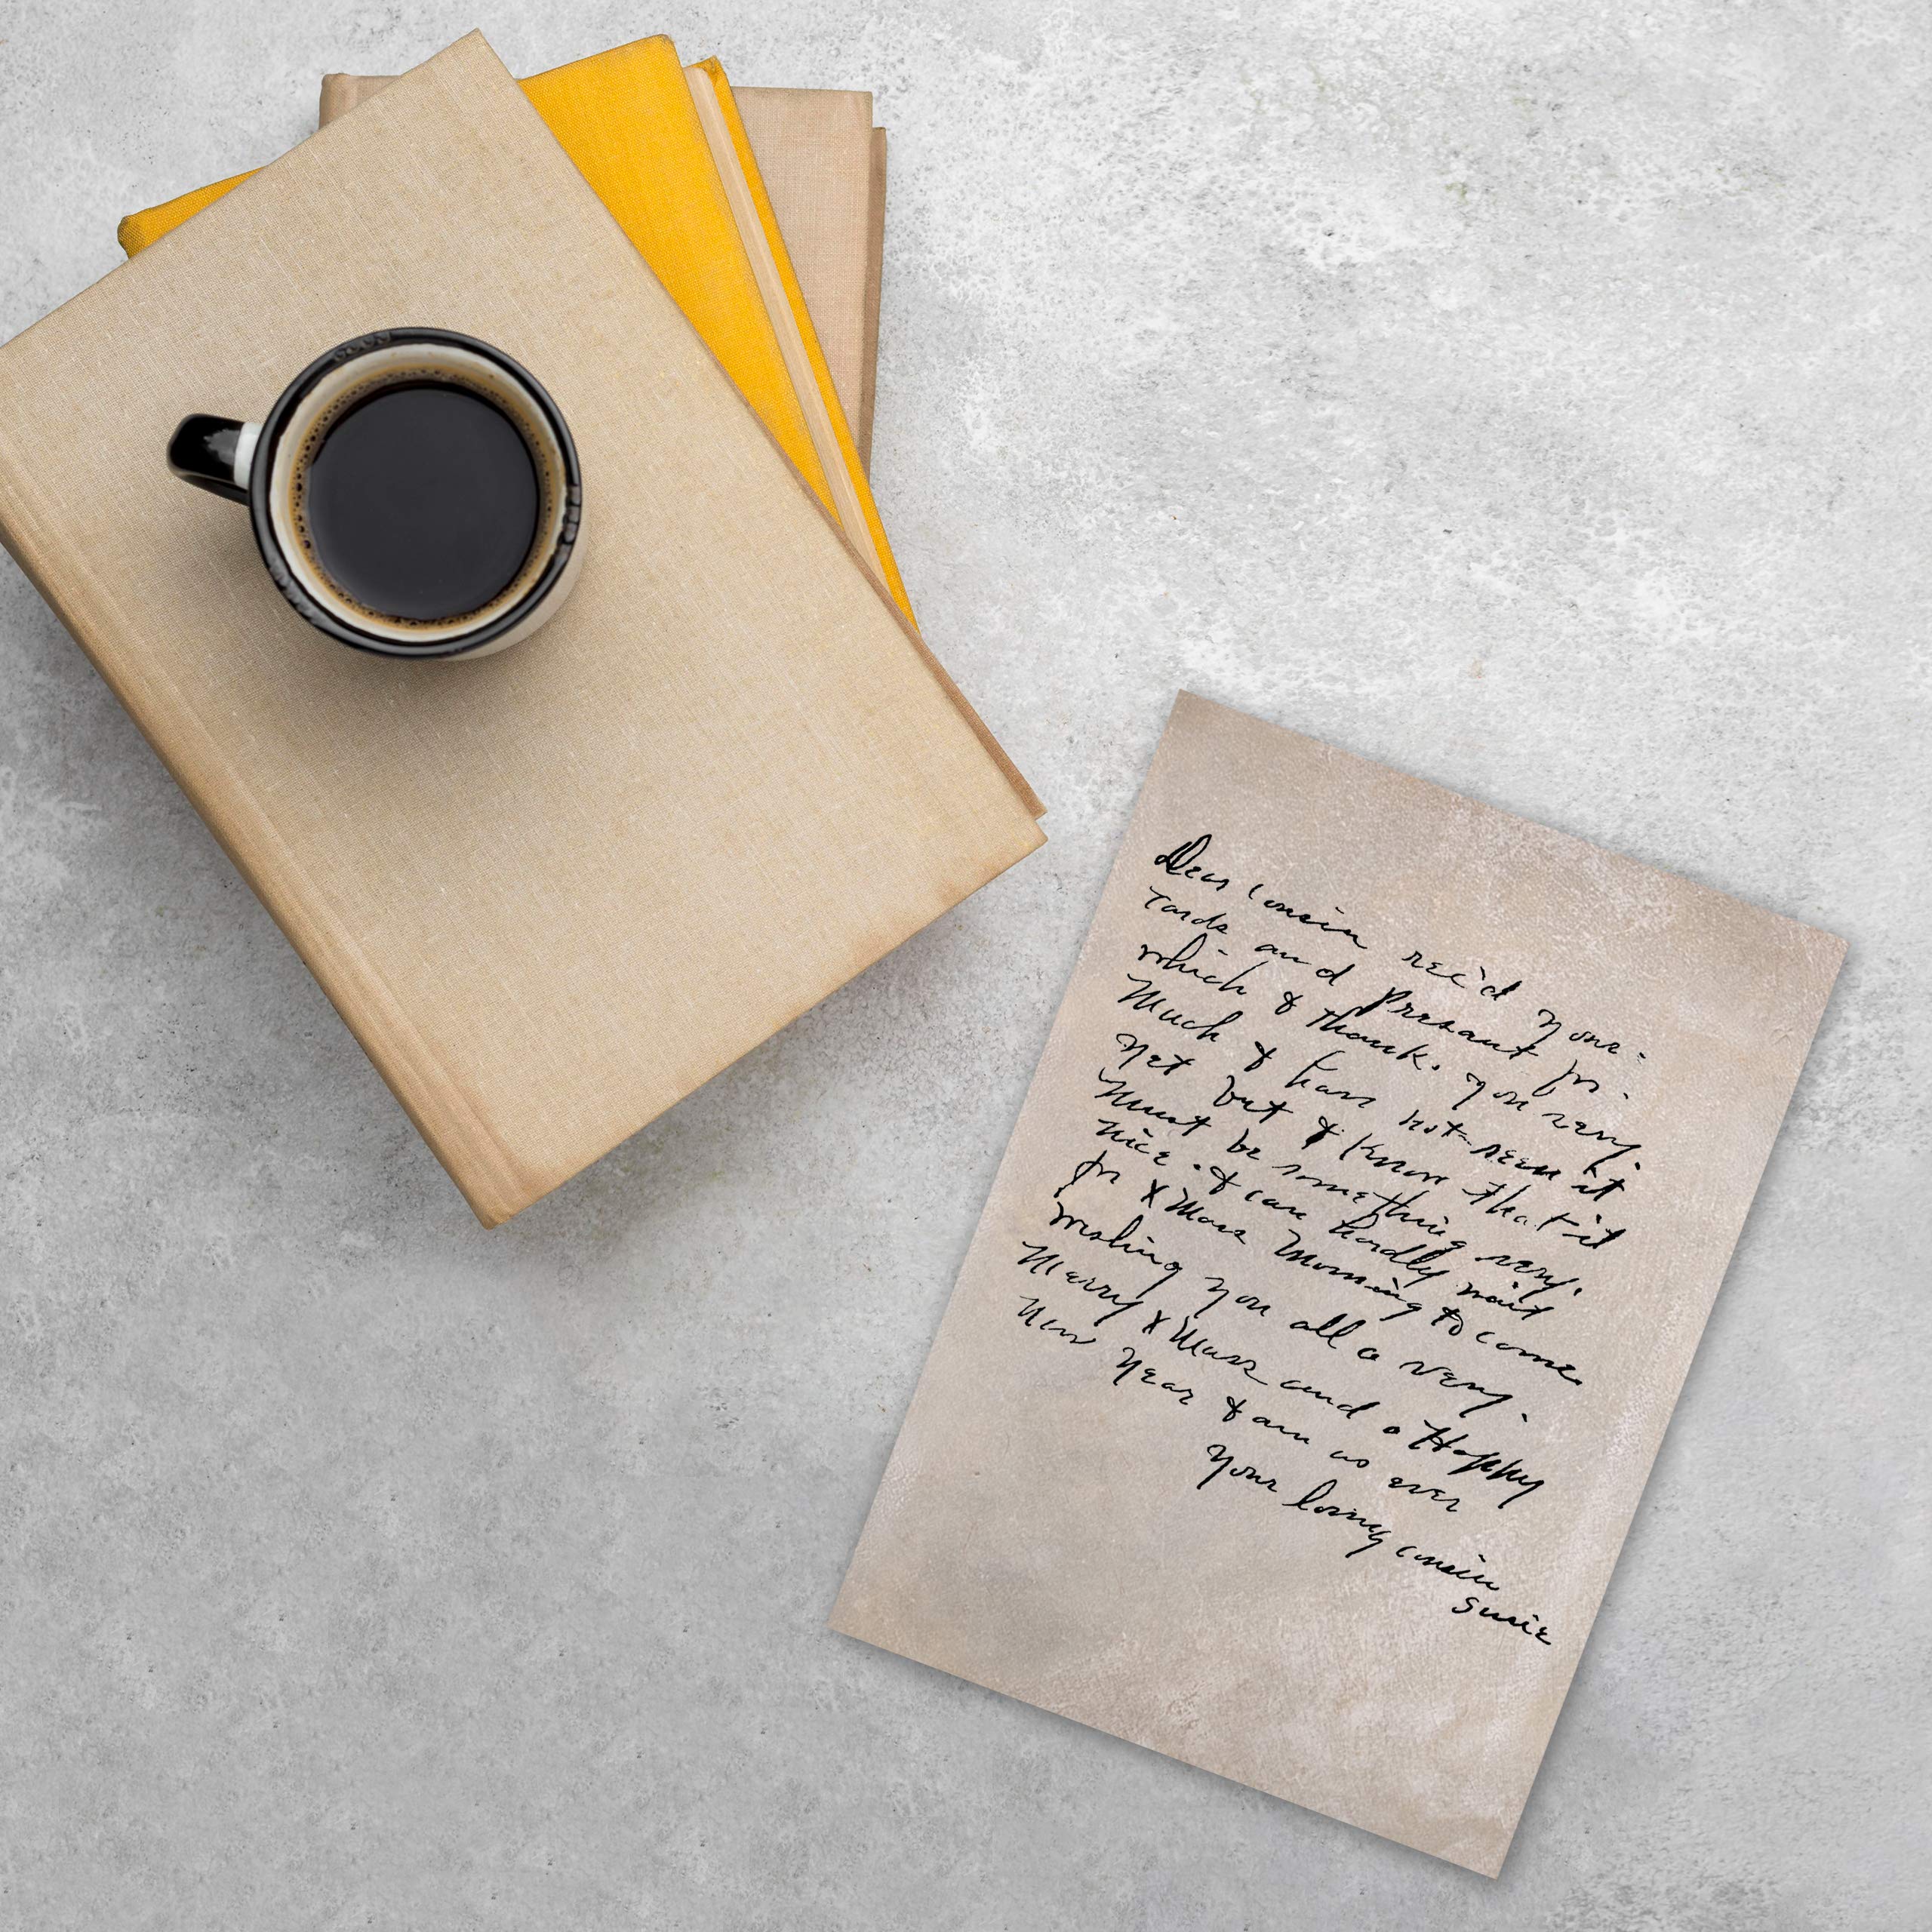 Dear Cousin rec'd your
Cards and Presant for
which I thank. you very.
Much I have not seen it
yet but I know that it
Must be something very.
nice. I can hardly wait
for XMas Morning to come.
wishing you all a very.
Merry XMass and a Happy
New Year I am as ever
Your loving cousin
Susie